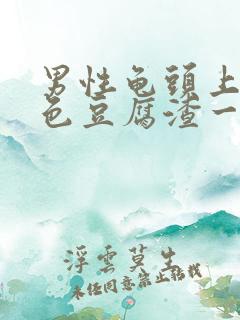 男性龟頭上
色豆腐渣一
浮雲莫生
未经同意禁止转载